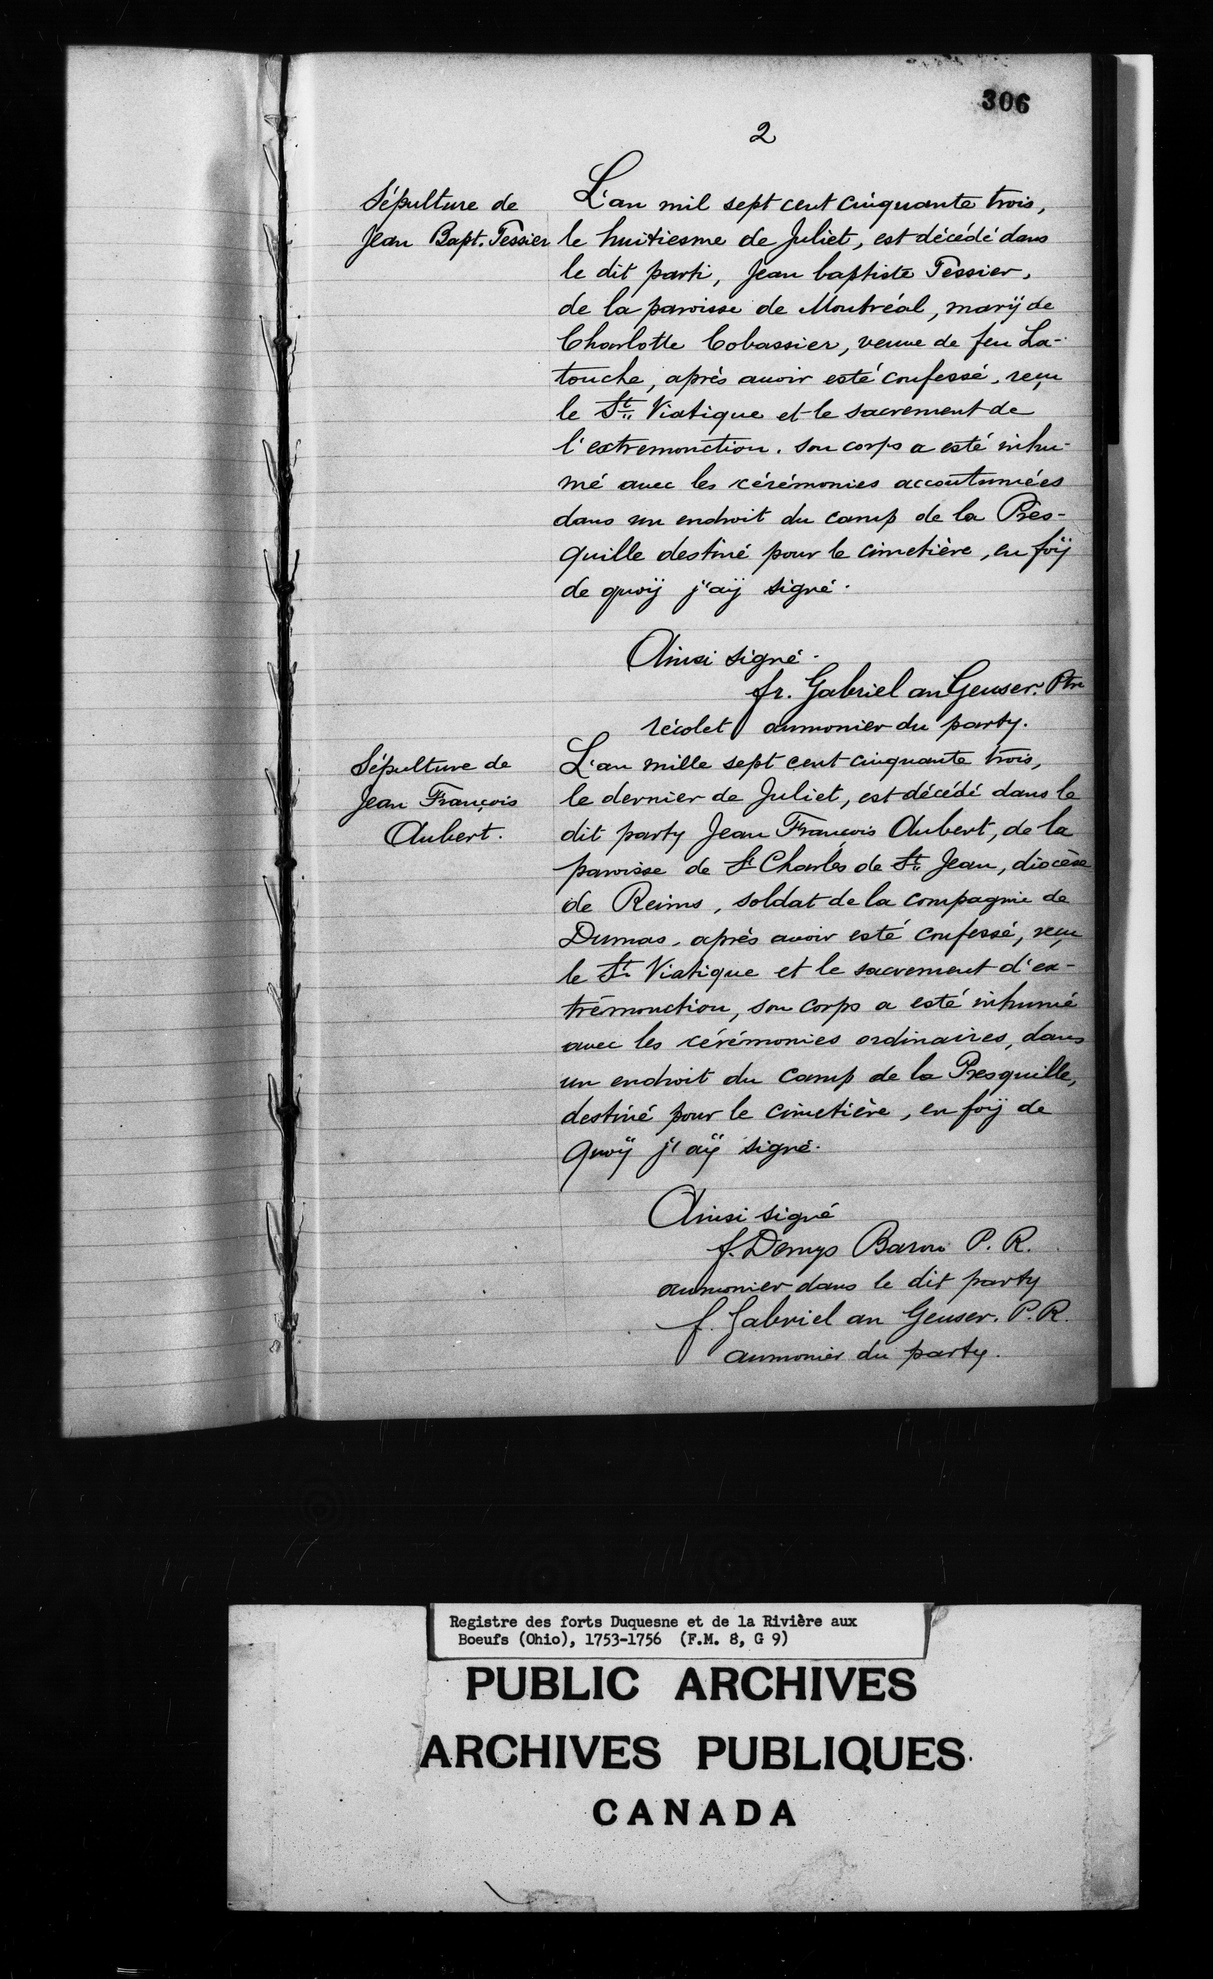 306
2
Sépulture de
Jean Bapt. Tessier
L'an mil sept cent cinquante trois,
le huitiesme de Juliet, est décédé dans
le dit parti, Jean baptiste Tessier,
de la paroisse de Montréal, marÿ de
Charlotte Cobassier, veuve de feu La-
touche, après avoir esté confessé, reçu
le St Viatique et le sacrement de
l'extremonction. son corps a esté inhu-
mé avec les cérémonies accoutumées
dans un endroit du camp de la Pres-
quille destiné pour le cimetière, en foÿ
de quoÿ j'aÿ signé.
Ainsi signé.
fr. Gabriel an Geuser. Ptre
récolet aumonier du party.
Sépulture de
Jean François
Aubert.
L'an mille sept cent cinquante trois,
le dernier de Juliet, est décédé dans le
dit party Jean François Aubert, de la
paroisse de St Charles de St Jean, diocèse
de Reims, soldat de la compagnie de
Dumas, après avoir esté confessé, reçu
le St Viatique et le sacrement d'ex-
trémonction, son corps a esté inhumé
avec les cérémonies ordinaires, dans
un endroit du camp de la Presquille,
destiné pour le cimetière, en foÿ de
quoÿ j'aÿ signé.
Ainsi signé
f. Denys Baron P. R.
aumonier dans le dit party
f. Gabriel an Geuser. P. R.
aumonier du party.
Registre des forts Duquesne et de la Rivière aux
Boeufs (Ohio), 1753-1756 (F.M. 8, G 9)
PUBLIC ARCHIVES
ARCHIVES PUBLIQUES
CANADA